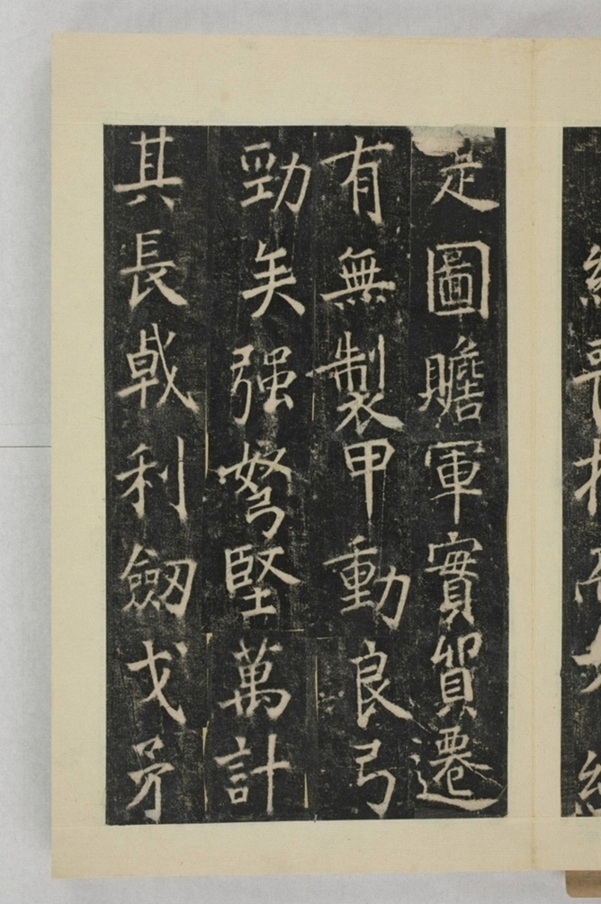 圖贍軍實貿遷
有無製甲動良弓
勁矢强弩堅萬計
其長戟利劒戈矛